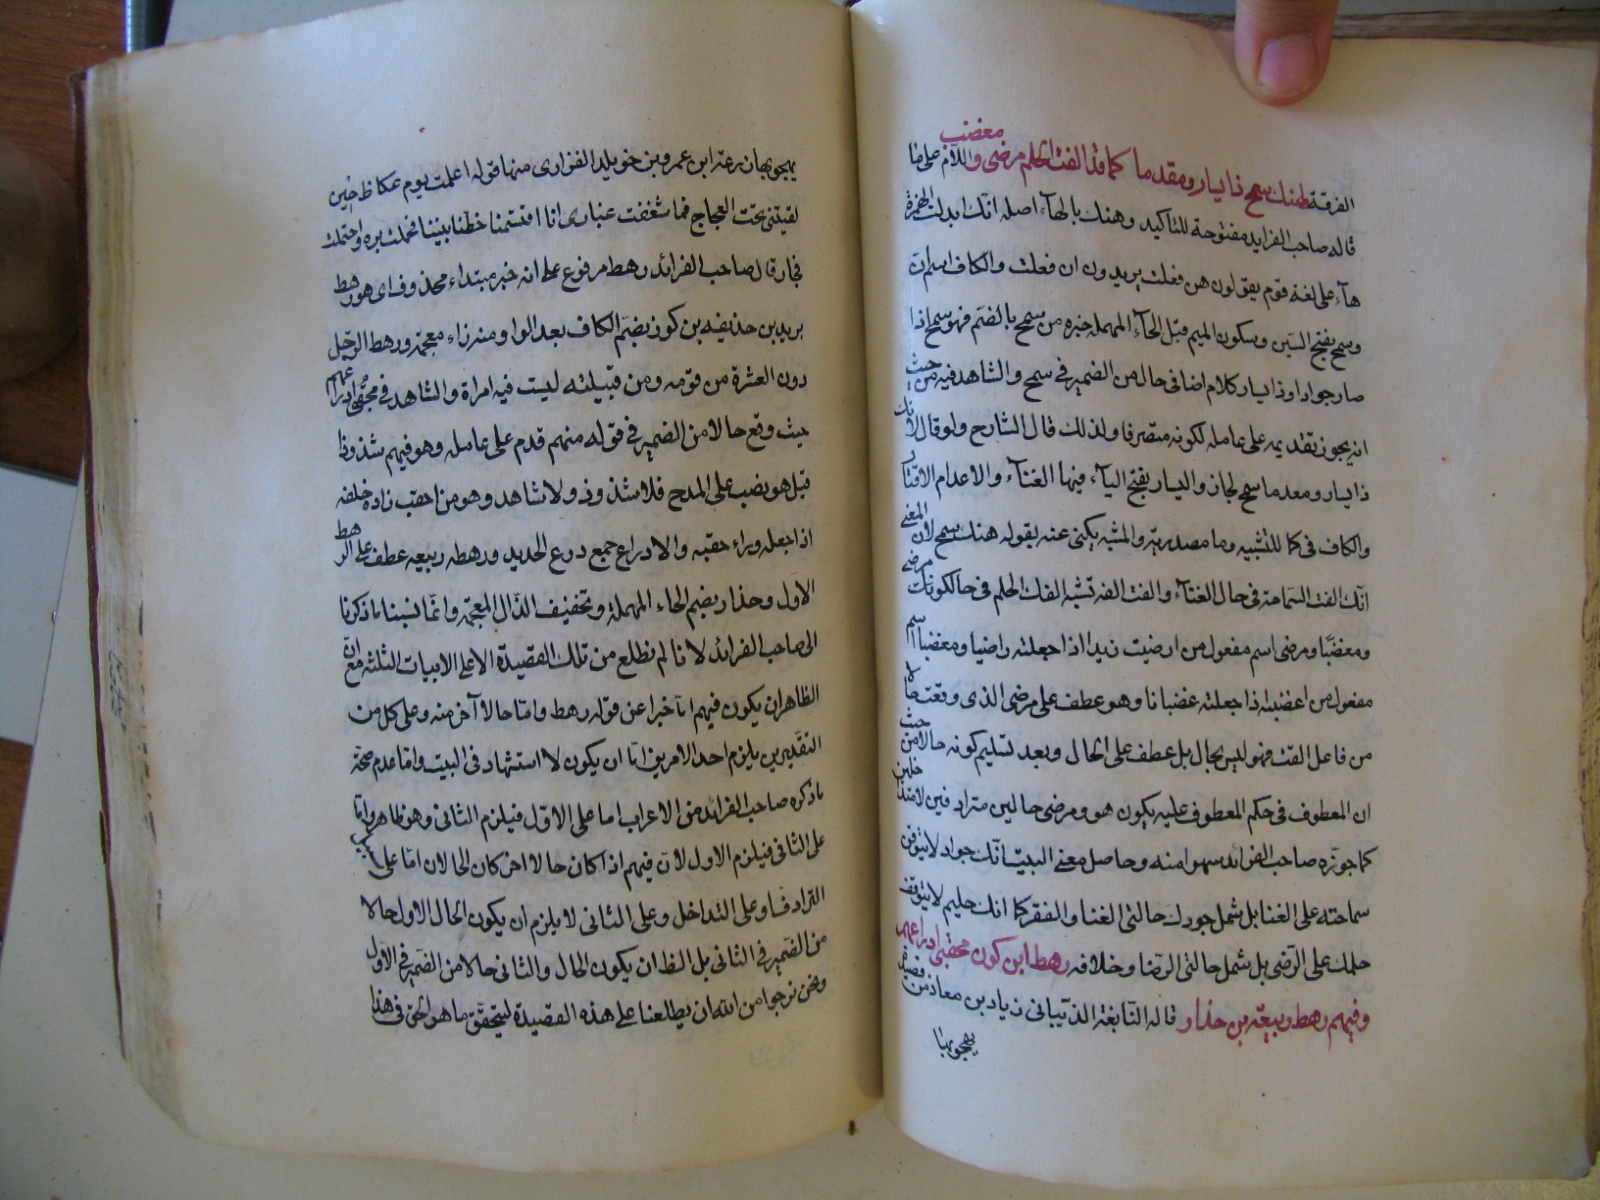 معضب
الفرقة لهنك سمح ذا يسار ومعدما كما قد الفت الحلم مرضى و اللام على ما
قاله صاحب الفرايد مفتوحة للتاكيد وهنك بالهاء اصله انك ابدلت الهمزة
هاء على لغة قوم يقولون هن فعلت يريدون ان فعلت والكاف اسم ان
وسمح بفتح السين وسكون الميم قبل الحاء المهملة خبره من سمح بالضم فهو سمح اذا
صار جوادا وذا يسار كلام اضافى حال من الضمير فى سمح والشاهد فيه من حيث
انه يجوز تقديمه على عامله لكونه متصرفا ولذلك قال الشارح ولو قال لانك
ذا يسار ومعدما سمح لجاز واليسار بفتح الياء فيها الغناء والاعدام الافتقار
والكاف فى كما للتشبيه وما مصدرية والمشبه يكنى عنه بقوله هنك سمح لان المعنى
انك الفت السماحة فى حال الغناء والفت الفة تشبه الفك الحلم فى حال كونك مرضى
ومغضبا ومرضى اسم مفعول من ارضيت زيدا اذا جعلته راضيا ومغضبا اسم
مفعول من اغضبته اذا جعلته غضبانا وهو عطف على مرضى الذى وقعت حالا
من فاعل الفت فهو ليس بحال بل عطف على الحال وبعد تسليم كونه حالا من حيث
ان المعطوف فى حكم المعطوف عليه يكون هو ومرضى حالين مترادفين لا متداخلين
كما جوزه صاحب الفرائد سهوا منه وحاصل معنى البيت انك جواد لا يتوقف
سماحته على الغنا بل شمل جودك حالتى الغنا والفقر كما انك حليم لا يتوقف
حلمك على الرضى بل شمل حالتى الرضا وخلافه رهط ابن كوز محقبى ادراعهم
وفيهم رهط ربيعة بن حذار قاله النابغة الذبيانى زياد بن معاذ من قصيدة
يهجو بها
يهجو بها زرعة ابن عمرو بن خويلد الفزارى منها قوله اعلمت يوم عكاظ حين
لقيتنى تحت العجاج فما شققت غبارى انا اقتسمنا خطتنا بيننا فحملت بره واحتملت
فجار قال صاحب الفرائد رهط مرفوع على انه خبر مبتداء محذوف اى هو رهط
بريد بن حذيفه بن كوز بضم الكاف بعد الواو منه زاء معجمة ورهط الرجل
دون العشرة من قومه ومن قبيلته ليست فيه امراة والشاهد فى محقبى ادراعهم
حيث وقع حالا من الضمير فى قوله منهم قدم على عامله وهو فيهم شذوذا
قيل هو نصب على المدح فلا شذوذ ولا شاهد وهو من احقب زاده خلفه
اذا جعله وراء حقبه والادراع جمع درع الحديد ورهطه ربيعه عطف على الرهط
الاول وحذار بضم الحاء المهملة وتخفيف الذال المعجمة وانما نسبنا ما ذكرنا
الى صاحب الفرائد لانا لم نطلع من تلك القصيدة الا على الابيات الثلثة مع ان
الظاهر ان يكون فيهم اما خبرا عن قوله رهط واما حالا آخر منه وعلى كل من
التقديرين يلزم احد الامرين اما ان يكون لا استشهاد فى البيت واما عدم صحة
ما ذكره صاحب الفرائد من الاعراب اما على الاول فيلزم الثانى وهو ظاهر واما
على الثانى فيلزم الاول لان فيهم اذا كان حالا اخر كان الحالان اما على
الترادف او على التداخل وعلى الثانى لا يلزم ان يكون الحال الاول حالا
من الضمير فى الثانى بل الظ ان يكون الحال والثانى حالا من الضمير فى الاول
ونحن نرجوا من الله ان يطلعنا على هذه القصيدة ليتحقق ما هو الحق فى هذا